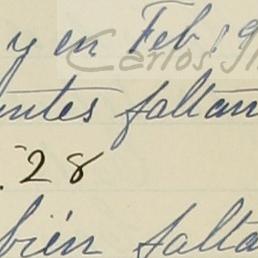 y en Feb. 19
Carlos
ntes faltan
. 28
bién falta